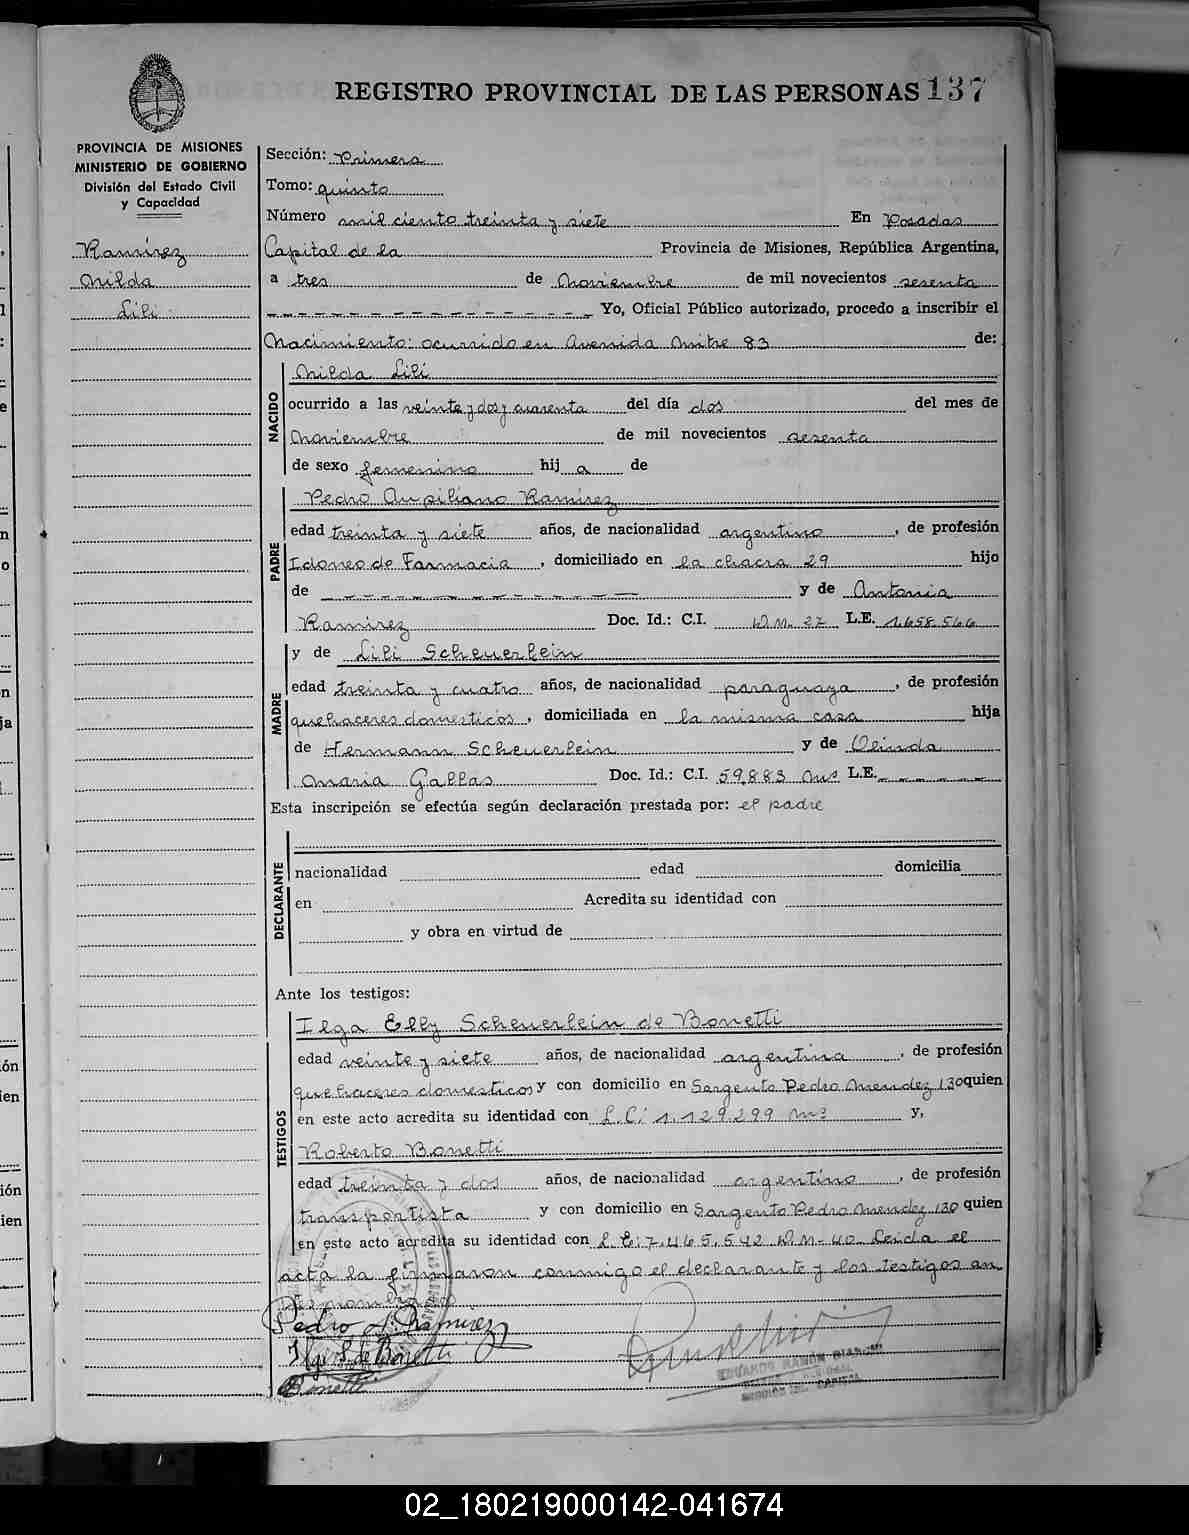 REGISTRO PROVINCIAL DE LAS PERSONAS 137
PROVINCIA DE MISIONES
MINISTERIO DE GOBIERNO
División del Estado Civil
y Capacidad
Ramírez
Nilda
Lili
Sección: Primera
Tomo: quinto
Número mil ciento treinta y siete En Posadas
Capital de la Provincia de Misiones, República Argentina,
a tres de Noviembre de mil novecientos sesenta
Yo, Oficial Público autorizado, procedo a inscribir el
Nacimiento: ocurrido en Avenida Mitre 83 de:
NACIDO
Nilda Lili
ocurrido a las veinte y dos y cuarenta del día dos del mes de
Noviembre de mil novecientos sesenta
de sexo femenino hij a de
PADRE
Pedro Ramírez
edad treinta y siete años, de nacionalidad argentino, de profesión
Idoneo de Farmacia, domiciliado en la chacra 29 hijo
de y de Antonia
Ramírez Doc. Id.: C.I. D.M. 27 L.E. 1.658.566
MADRE
y de Lili Scheuerlein
edad treinta y cuatro años, de nacionalidad paraguaya, de profesión
quehaceres domesticos, domiciliada en la misma casa hija
de Hermann Scheuerlein y de Olinda
Maria Gallas Doc. Id.: C.I. 59.883 Mis L.E.
Esta inscripción se efectúa según declaración prestada por: el padre
DECLARANTE
nacionalidad edad domicilia
en Acredita su identidad con
y obra en virtud de
Ante los testigos:
TESTIGOS
Ilga Elly Scheuerlein de Bonetti
edad veinte y siete años, de nacionalidad argentina, de profesión
quehaceres domesticos y con domicilio en Sargento Pedro Mendez 130 quien
en este acto acredita su identidad con L.C: 1.129.299 y,
Roberto Bonetti
edad treinta y dos años, de nacionalidad argentino, de profesión
transportista y con domicilio en Sargento Pedro Mendez 130 quien
en este acto acredita su identidad con L.E: 7.465.542 D.M-40. Leida el
acta la firmaron conmigo el declarante y los testigos an
tes nombrados
Pedro A. Ramírez
Ilga S. de Bonetti
Bonetti
EDUARDO RAMÓN BIANCHI
02_180219000142-041674